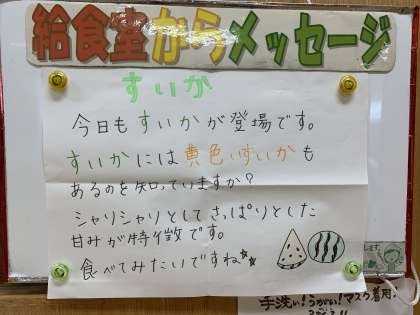 給食室からメッセージ
すいか
今日もすいかが登場です。
すいかには黄色いすいかも
あるのを知っていますか?
シャリシャリとしてさっぱりとした
甘みが特徴です。
食べてみたいですね☆☆
します。
手洗い!うがい!マスク着用!